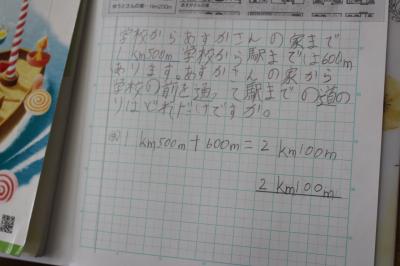 学校からあすかさんの家まで
1km500m学校から駅までは600m
あります。あすかさんの家から
学校の前を通って駅までの道の
りはどれだけですか。
1km500m+600m=2km100m
2km100m